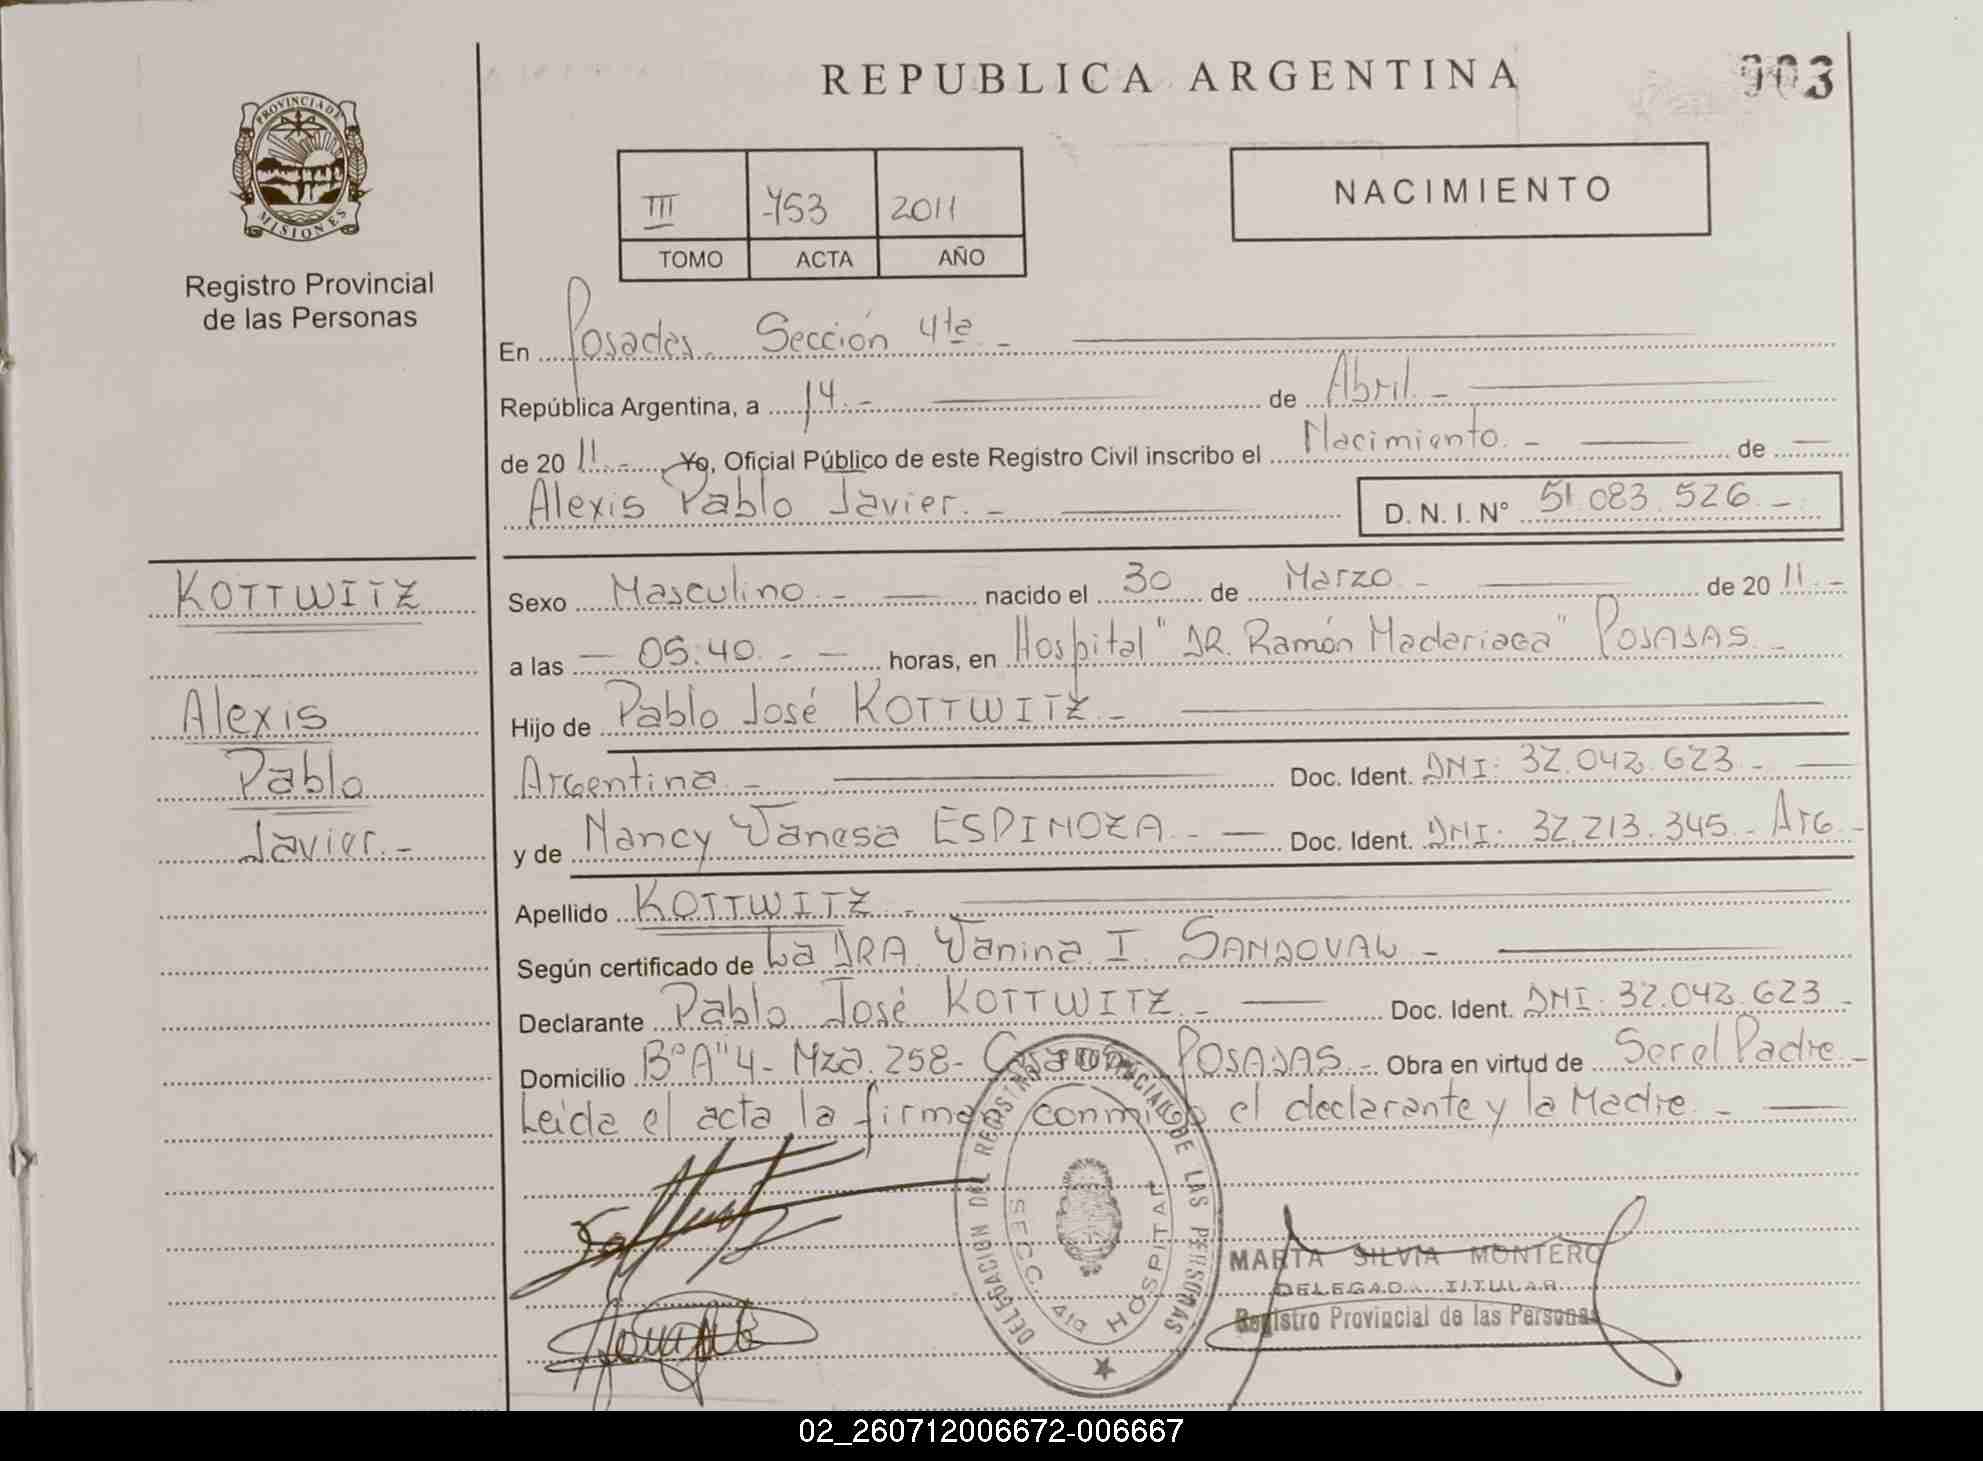 REPUBLICA ARGENTINA
903
PROVINCIA DE MISIONES
Registro Provincial
de las Personas
III 753 2011
TOMO ACTA AÑO
NACIMIENTO
En Posadas. Sección 4ta. -
República Argentina, a 14. - de Abril. -
de 20 11. - Yo, Oficial Público de este Registro Civil inscribo el Nacimiento. - de -
Alexis Pablo Javier. - D. N. I. N° 51.083.526. -
KOTTWITZ
Alexis
Pablo
Javier. -
Sexo Masculino. - nacido el 30 de Marzo. - de 20 11. -
a las - 05:40. - - horas, en Hospital "DR. Ramón Madariaga" POSADAS. -
Hijo de Pablo José KOTTWITZ. -
Argentina. - Doc. Ident. DNI: 32.042.623. -
y de Nancy Vanesa ESPINOZA. - Doc. Ident. DNI: 32.213.345. Arg. -
Apellido KOTTWITZ. -
Según certificado de La DRA. Vanina I. SANDOVAL. -
Declarante Pablo José KOTTWITZ. - Doc. Ident. DNI: 32.042.623. -
Domicilio B° A"4 - Mza. 258 - Casa POSADAS. - Obra en virtud de Ser el Padre. -
Leída el acta la firman conmigo el declarante y la Madre. -
DELEGACION DEL REGISTRO PROVINCIAL DE LAS PERSONAS
SECC. 4ta HOSPITAL
MARTA SILVIA MONTERO
DELEGADA TITULAR
Registro Provincial de las Personas
02_260712006672-006667